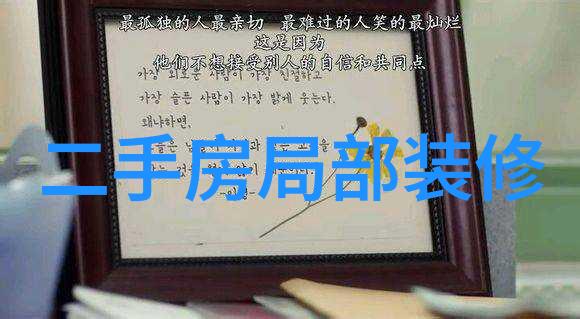 最孤独的人最亲切 最难过的人笑的最灿烂
这是因为
他们不想接受别人的自信和共同点
가장 외로운 사람이 가장 친절하고
가장 슬픈 사람이 가장 밝게 웃는다.
왜냐하면,
二手房局部装修